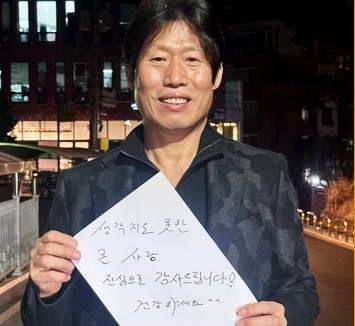 생각지도 못한
큰 사랑
진심으로 감사드립니다!
건강하세요^^